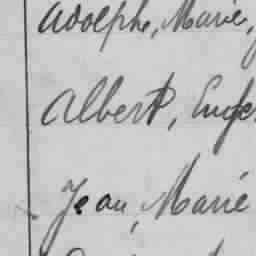 Adolphe, Marie,
Albert, Eugè
Jean, Marie